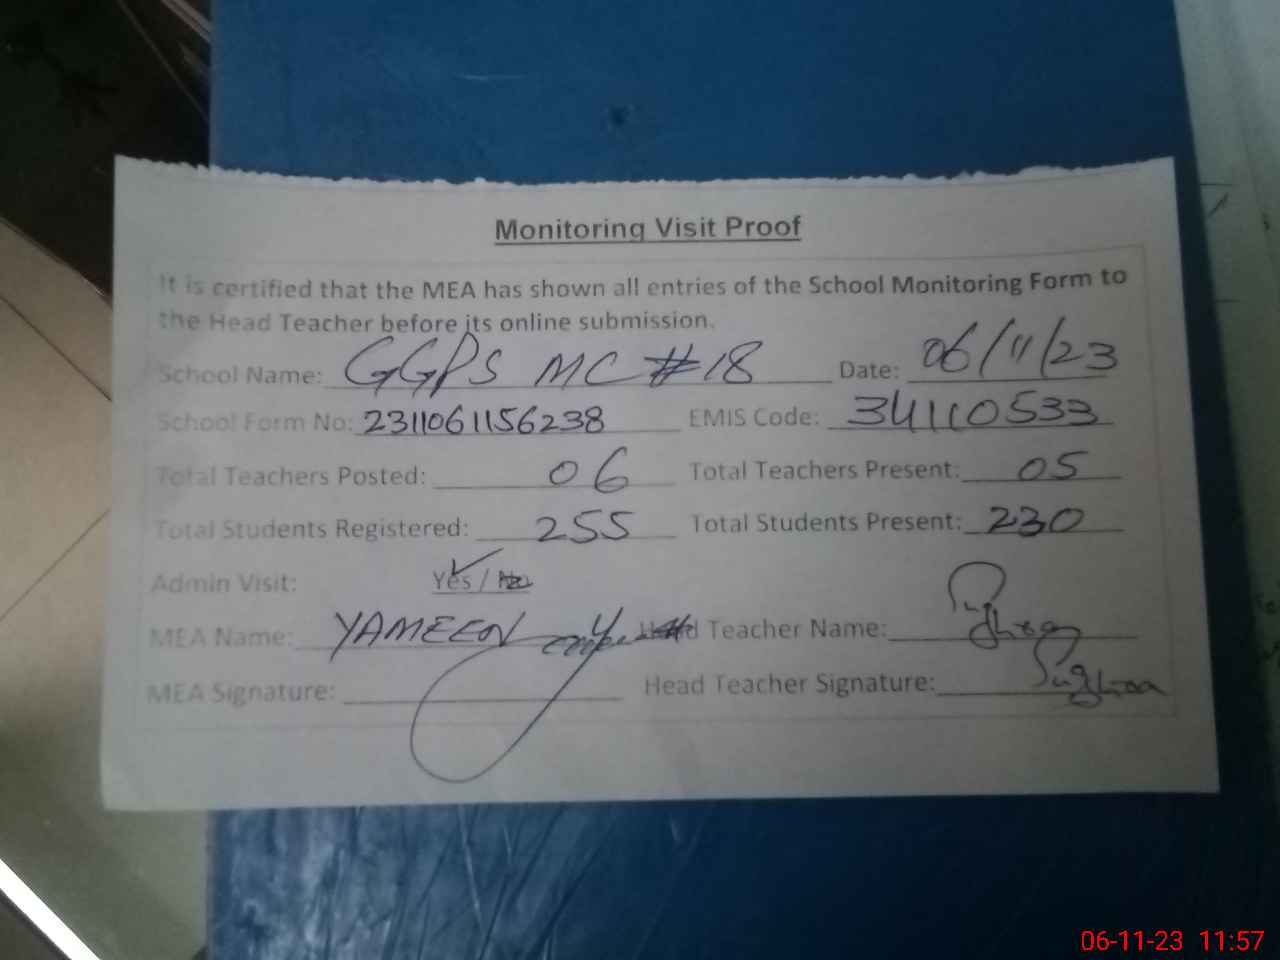 Monitoring Visit Proof
It is certified that the MEA has shown all entries of the School Monitoring Form to
the Head Teacher before its online submission.
School Name: GGPS MC #18 Date: 06/11/23
School Form No: 2311061156238 EMIS Code: 34110533
Total Teachers Posted: 06 Total Teachers Present: 05
Total Students Registered: 255 Total Students Present: 230
Admin Visit: Yes / No
MEA Name: YAMEEN Head Teacher Name: Sughraa
MEA Signature: Head Teacher Signature: Sughraa
06-11-23 11:57